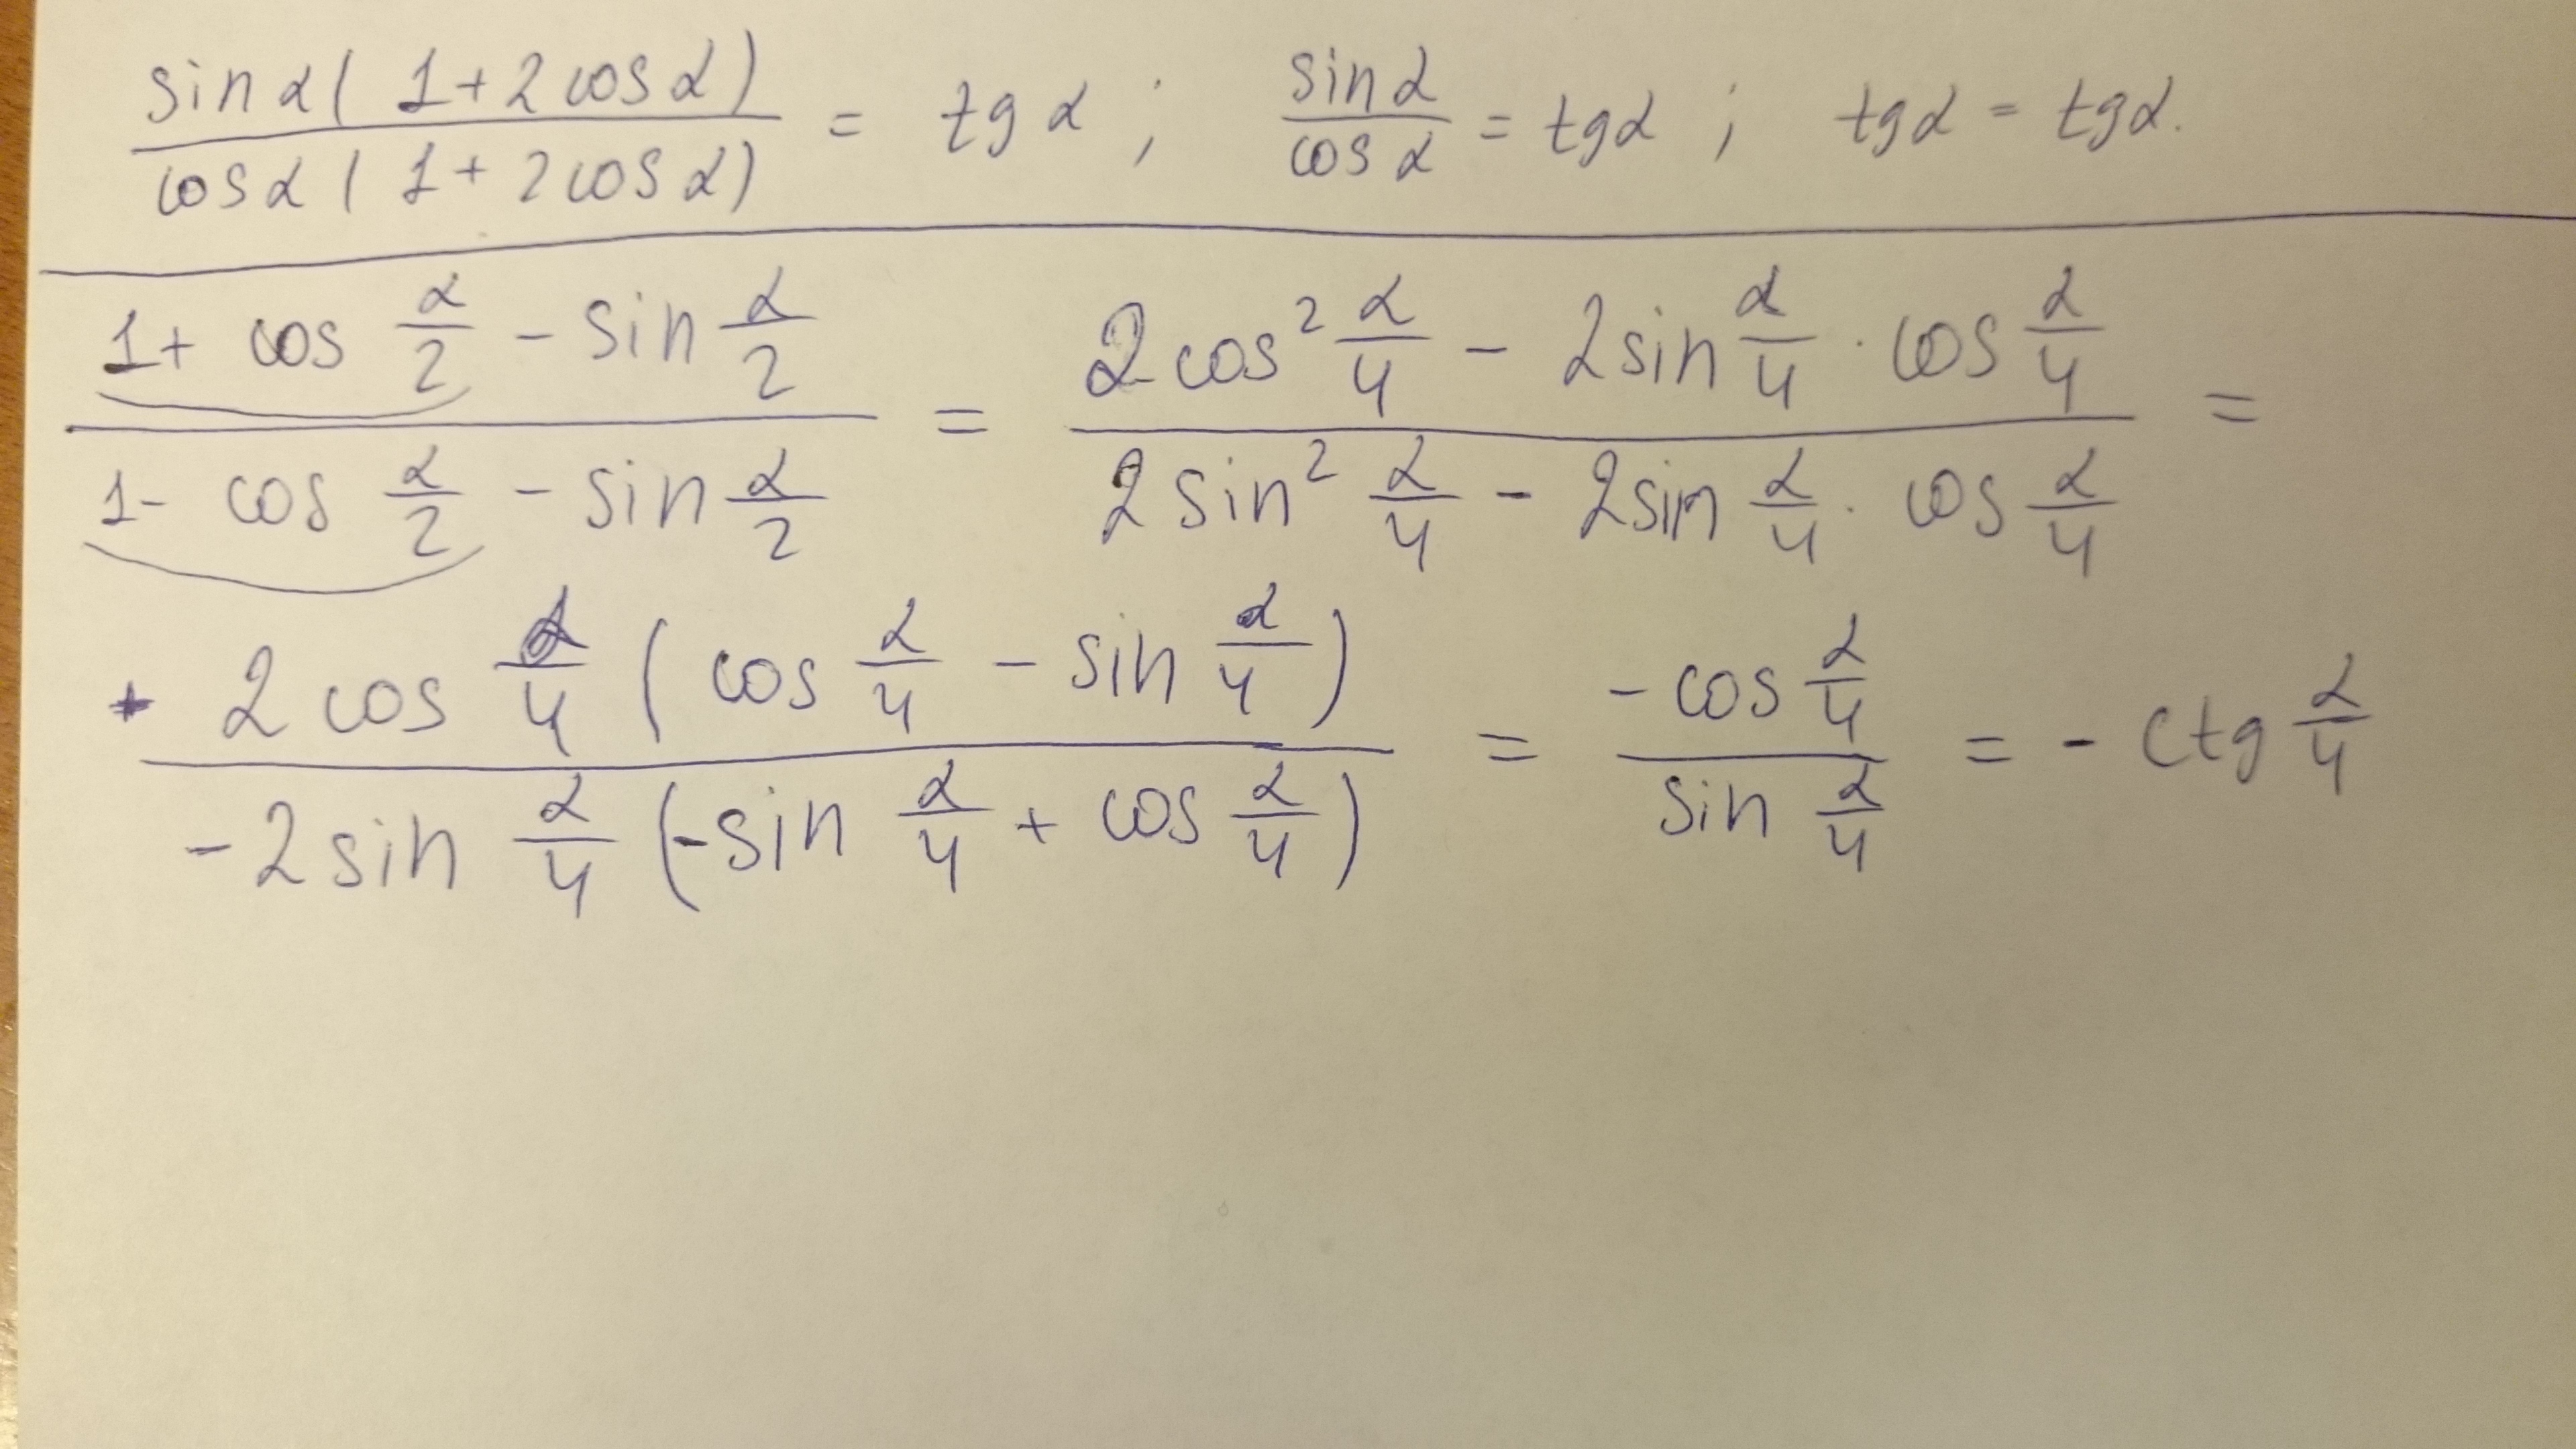 sin α(1+2cos α) / cos α(1+2cos α) = tg α ; sin α / cos α = tg α ; tg α = tg α.
(1+ cos α/2 - sin α/2) / (1- cos α/2 - sin α/2) = (2cos² α/4 - 2sin α/4 · cos α/4) / (2sin² α/4 - 2sin α/4 · cos α/4) =
2cos α/4 (cos α/4 - sin α/4) / -2sin α/4 (-sin α/4 + cos α/4) = -cos α/4 / sin α/4 = - ctg α/4